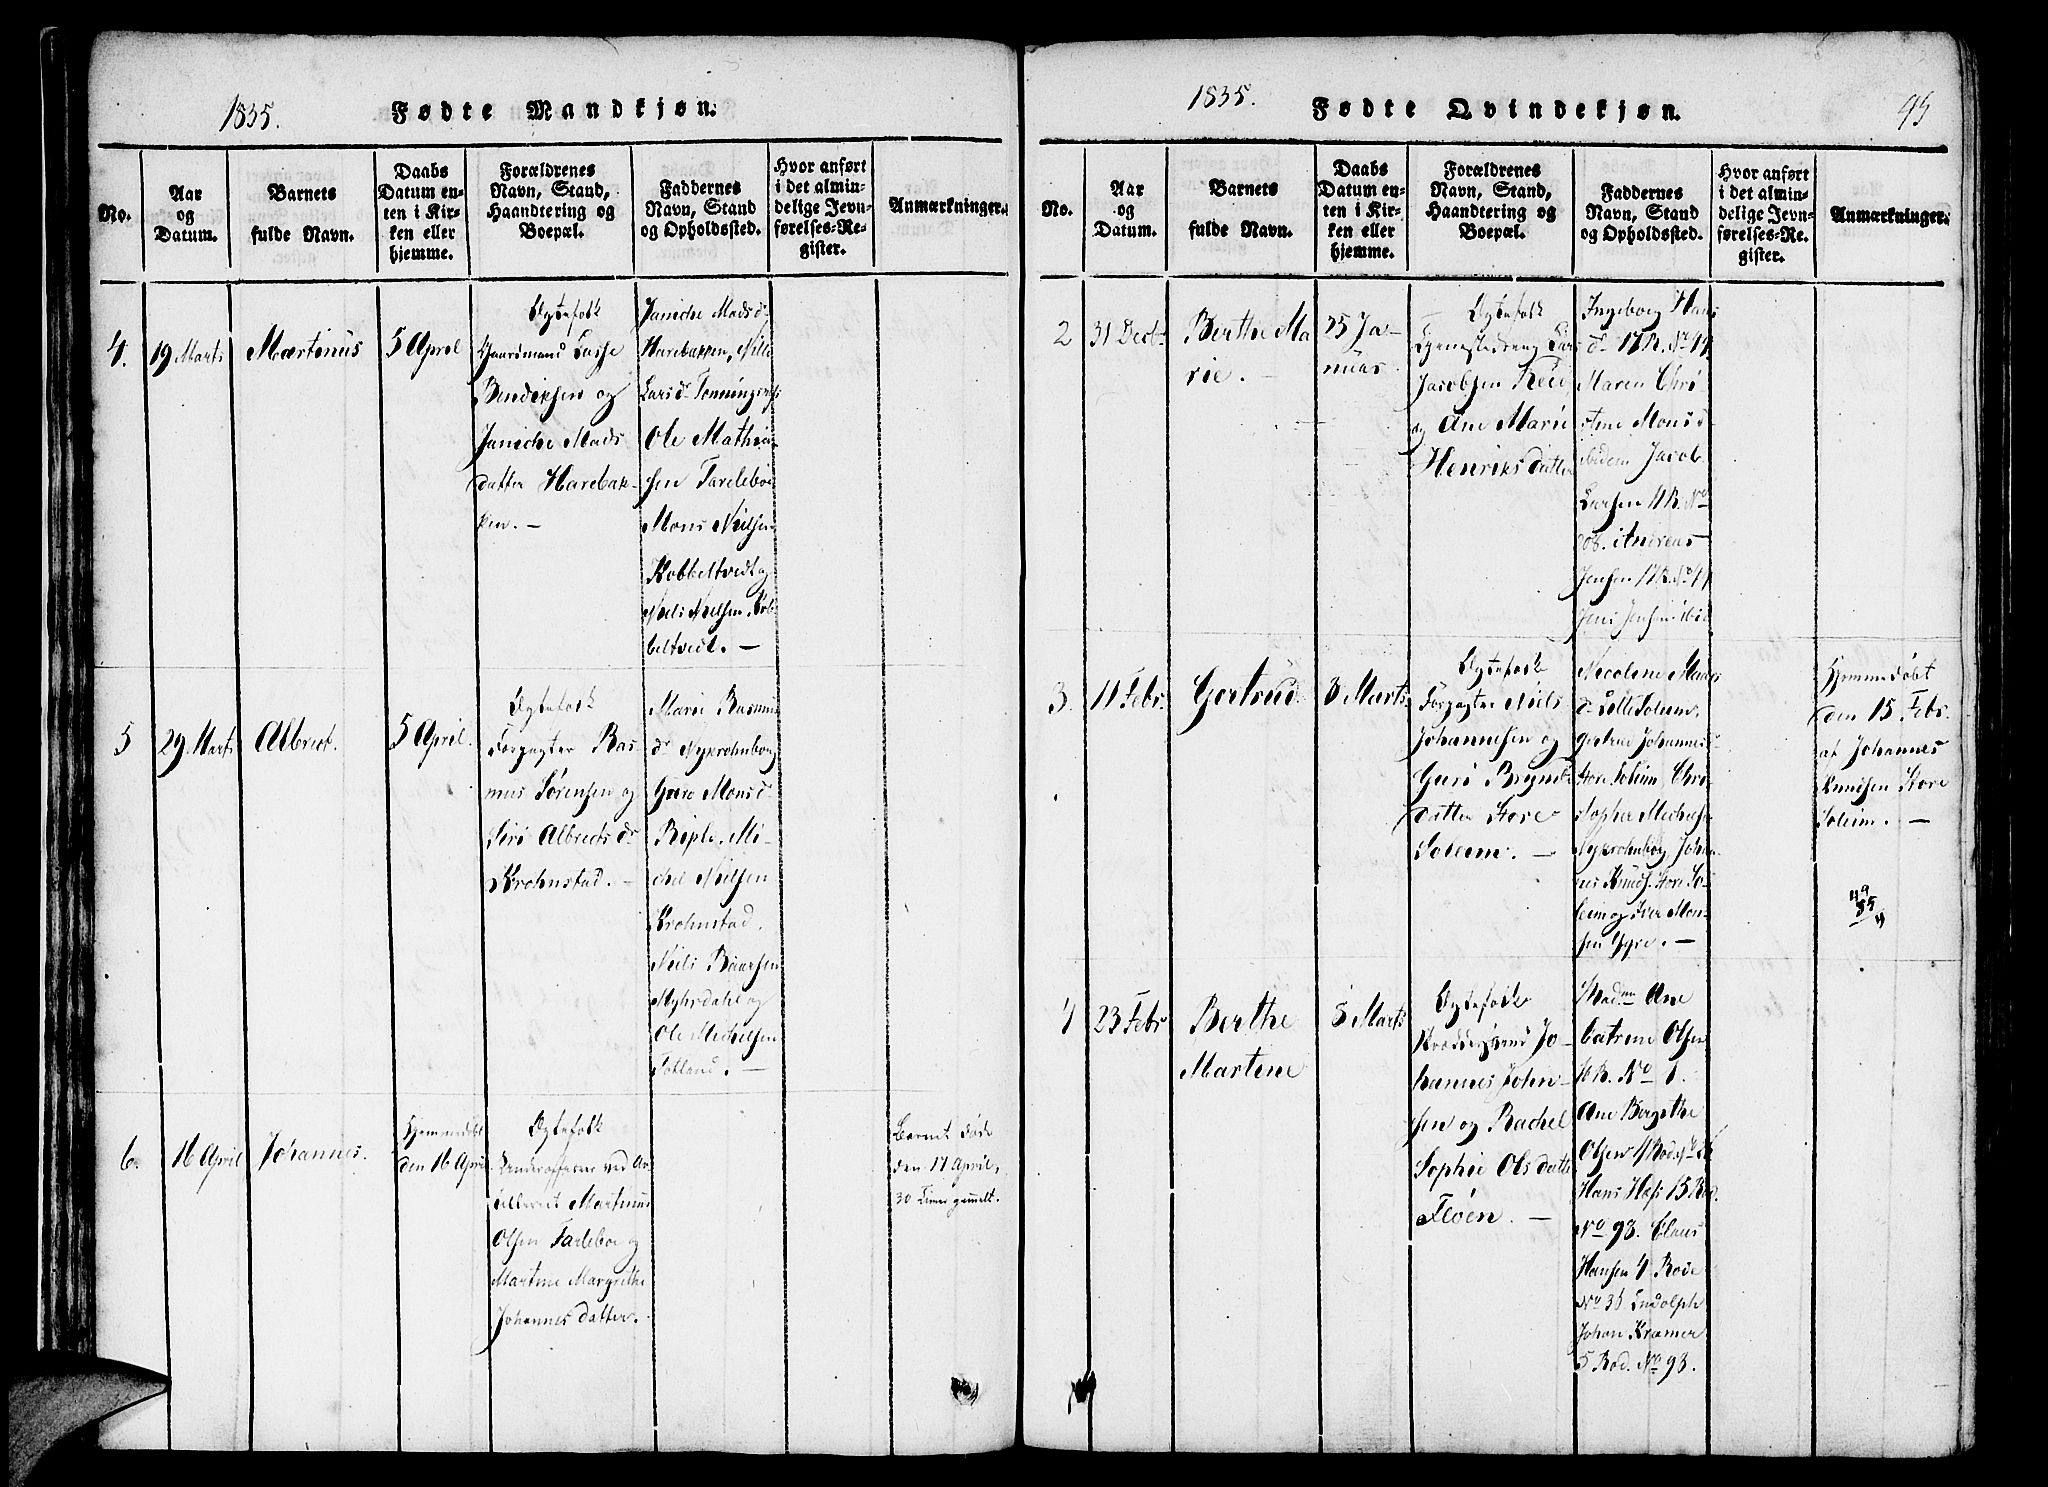 1835. Fødte Mandkjøn.
No.
Aar
og
Datum.
Barnets
fulde Navn.
Daabs
Datum en-
ten i Kir-
ken eller
hjemme.
Forældrenes
Navn, Stand,
Haandtering og
Boepæl.
Faddernes
Navn, Stand
og Opholdssted.
Hvor anført
i det almin-
delige Jevn-
førelses-Re-
gister.
Anmærkninger.
4.
19 Marts
Martinus
5 April
Egtefolk
Gaardmand Lasse
Bendixsen og
Janiche Mads
datter Harebak-
ken. —
Janiche Mads d.
Harebakken, Nille
Lars d.
Ole Mathia
sen Tarleboe
Mons Nielsen
Kobbeltvedt og
Niels Nielsen Kob-
beltvedt. —
5
29 Marts
Albrect.
5 April.
Egtefolk
Forpagter Ras-
mus Sørensen og
Siri Albrects dr
Krohnstad. —
Mari Rasmus
dr Nykrohnborg
Guro Mons d.
Riple. Mi-
chel Nielsen
Krohnstad.
Niels Baarsen
Myhrdahl og
Ole Michelsen
Totland. —
6.
16 April
Johannes.
Hjemmedøbt
den 16 April
Egtefolk
Underofficeer ved Ar-
tilleriet Martinus
Olsen Tarleboe og
Martine Margrethe
Johannes datter.
Barnet døde
den 17 April,
30 Timer gammelt.
1835. Fødte Qvindekjøn. 95
No.
Aar
og
Datum.
Barnets
fulde Navn.
Daabs
Datum en-
ten i Kir-
ken eller
hjemme.
Forældrenes
Navn, Stand,
Haandtering og
Boepæl.
Faddernes
Navn, Stand
og Opholdssted.
Hvor anført
i det almin-
delige Jevn-
førelses-Re-
gister.
Anmærkninger.
2
31 Decbr
Berthe Ma
rie. —
25 Ja-
nuar
Egtefolk
Lars
Jacobsen
og Ane Marie
Henriks datter
Ingeborg Hans
dr 17 R. No 44.
Maren Chri
Ane Mons d.
ibidem Jacob
Larsen 11 R. No
Andreas
Jensen 17 R. No 44
Jens Jensen ibid
3.
11 Febr.
Gertrud.
8 Marts.
Egtefolk
Forpagter Niels
Johannesen og
Guro Brynilds
datter Store
Soleim. —
Nicolene Mads
dr Lille Soleim.
Gertrud Johannes d.
Store Soleim, Chri-
stopher Michels.
Nykrohnborg, Johan-
nes Knuds. Store So-
leim og Iver Mon-
sen Gyre. —
Hjemmedøbt
den 15 Febr.
af Johannes
Knudsen Store
Soleim. —
4
23 Febr
Berthe
Martine
8 Marts
Egtefolk
Jo-
hannes John-
sen og Rachel
Sophie Ols datter
Fløen. —
Madme Ane
Catrine Olsen
No 1.
Ane Bergithe
Olsen 4 Rod. No
Hans Hess 15 Rod.
No 93. Claus
Hansen 4 Rode
No 35 Ludolph
Johan Kramer
5 Rod. No 93.